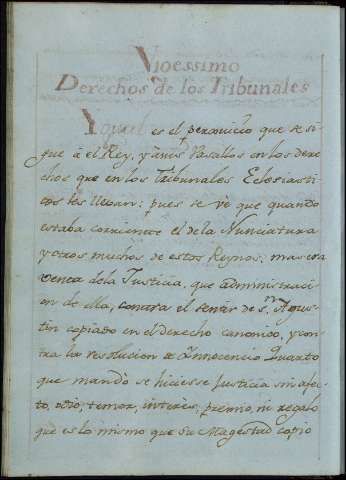 Vigessimo
Derechos de los Tribunales
Ygual es el perjuicio que se si-
gue á el Rey, y á sus Vasallos en los dere
chos que en los Tribunales Eclesiasti
cos les llevan; pues se vé que quando
estaba corriente el de la Nunciatura
y otros muchos de estos Reynos; mas era
venta de la Justicia, que administracion
de ella, contra el sentir de Sn. Agus
tin copiado en el derecho canonico, y con
tra la resolucion de Innocencio Quarto
que mandó se hiciese Justicia sin afec
to, odio, temor, interés, premio, ni regalo
que es lo mismo que Su Magestad copio